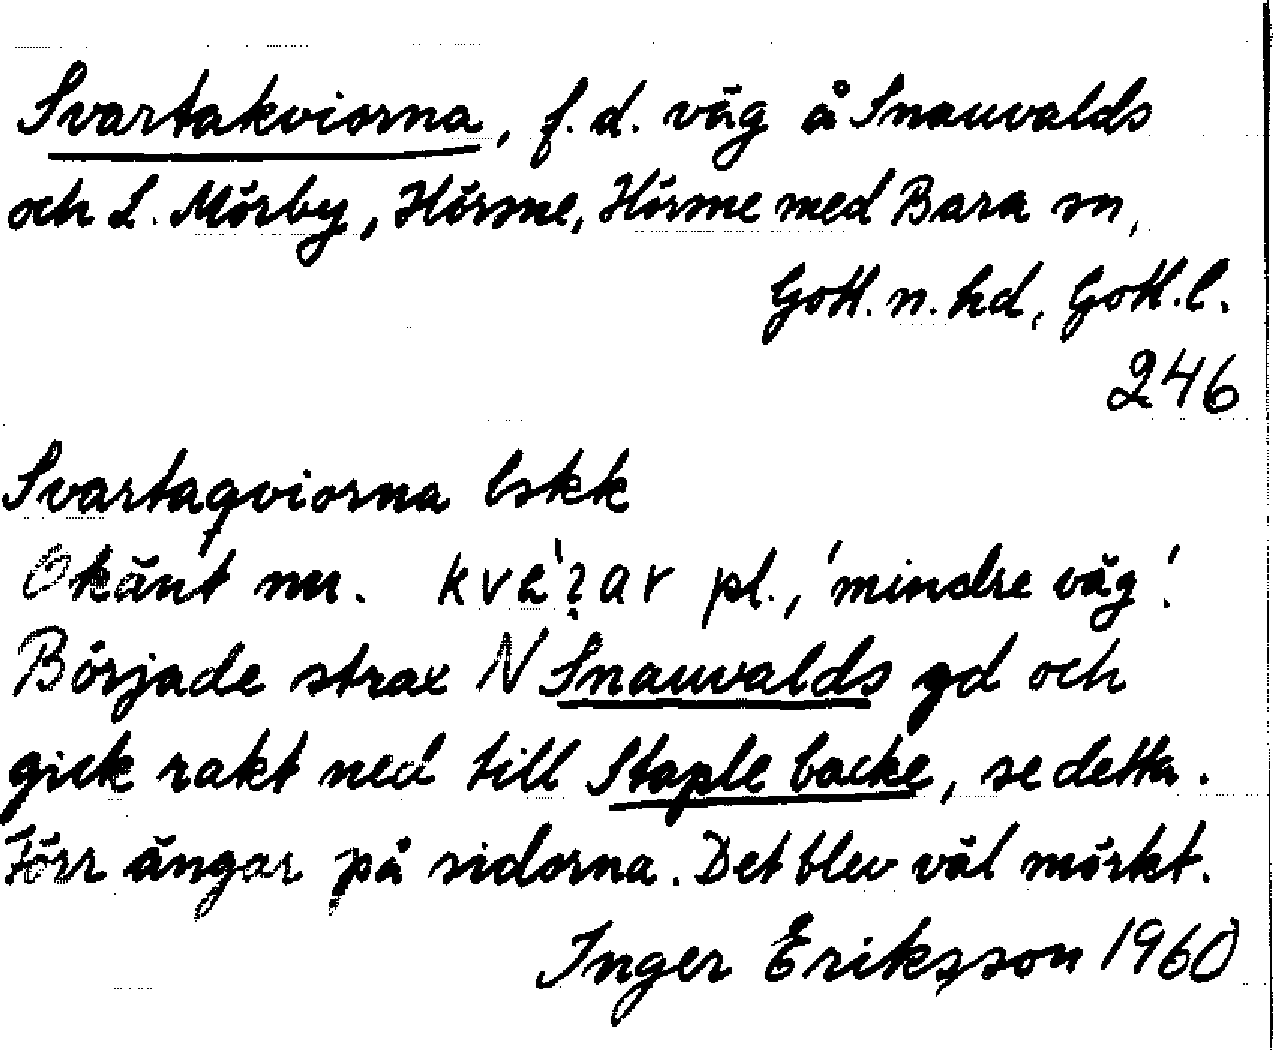 Svartakviorna, f.d. väg å Snauvalds
och L. Mörby, Hörsne, Hörsne med Bara sn,
Gotl. n. hd, Gotl. l.
246
Svartaqviorna lskk
Okänt nu. kvar pl., 'mindre väg'.
Började strax N Snauvalds gd och
gick rakt ned till Staple backe, se detta.
Förr ängar på sidorna. Det blev väl mörkt.
Inger Eriksson 1960